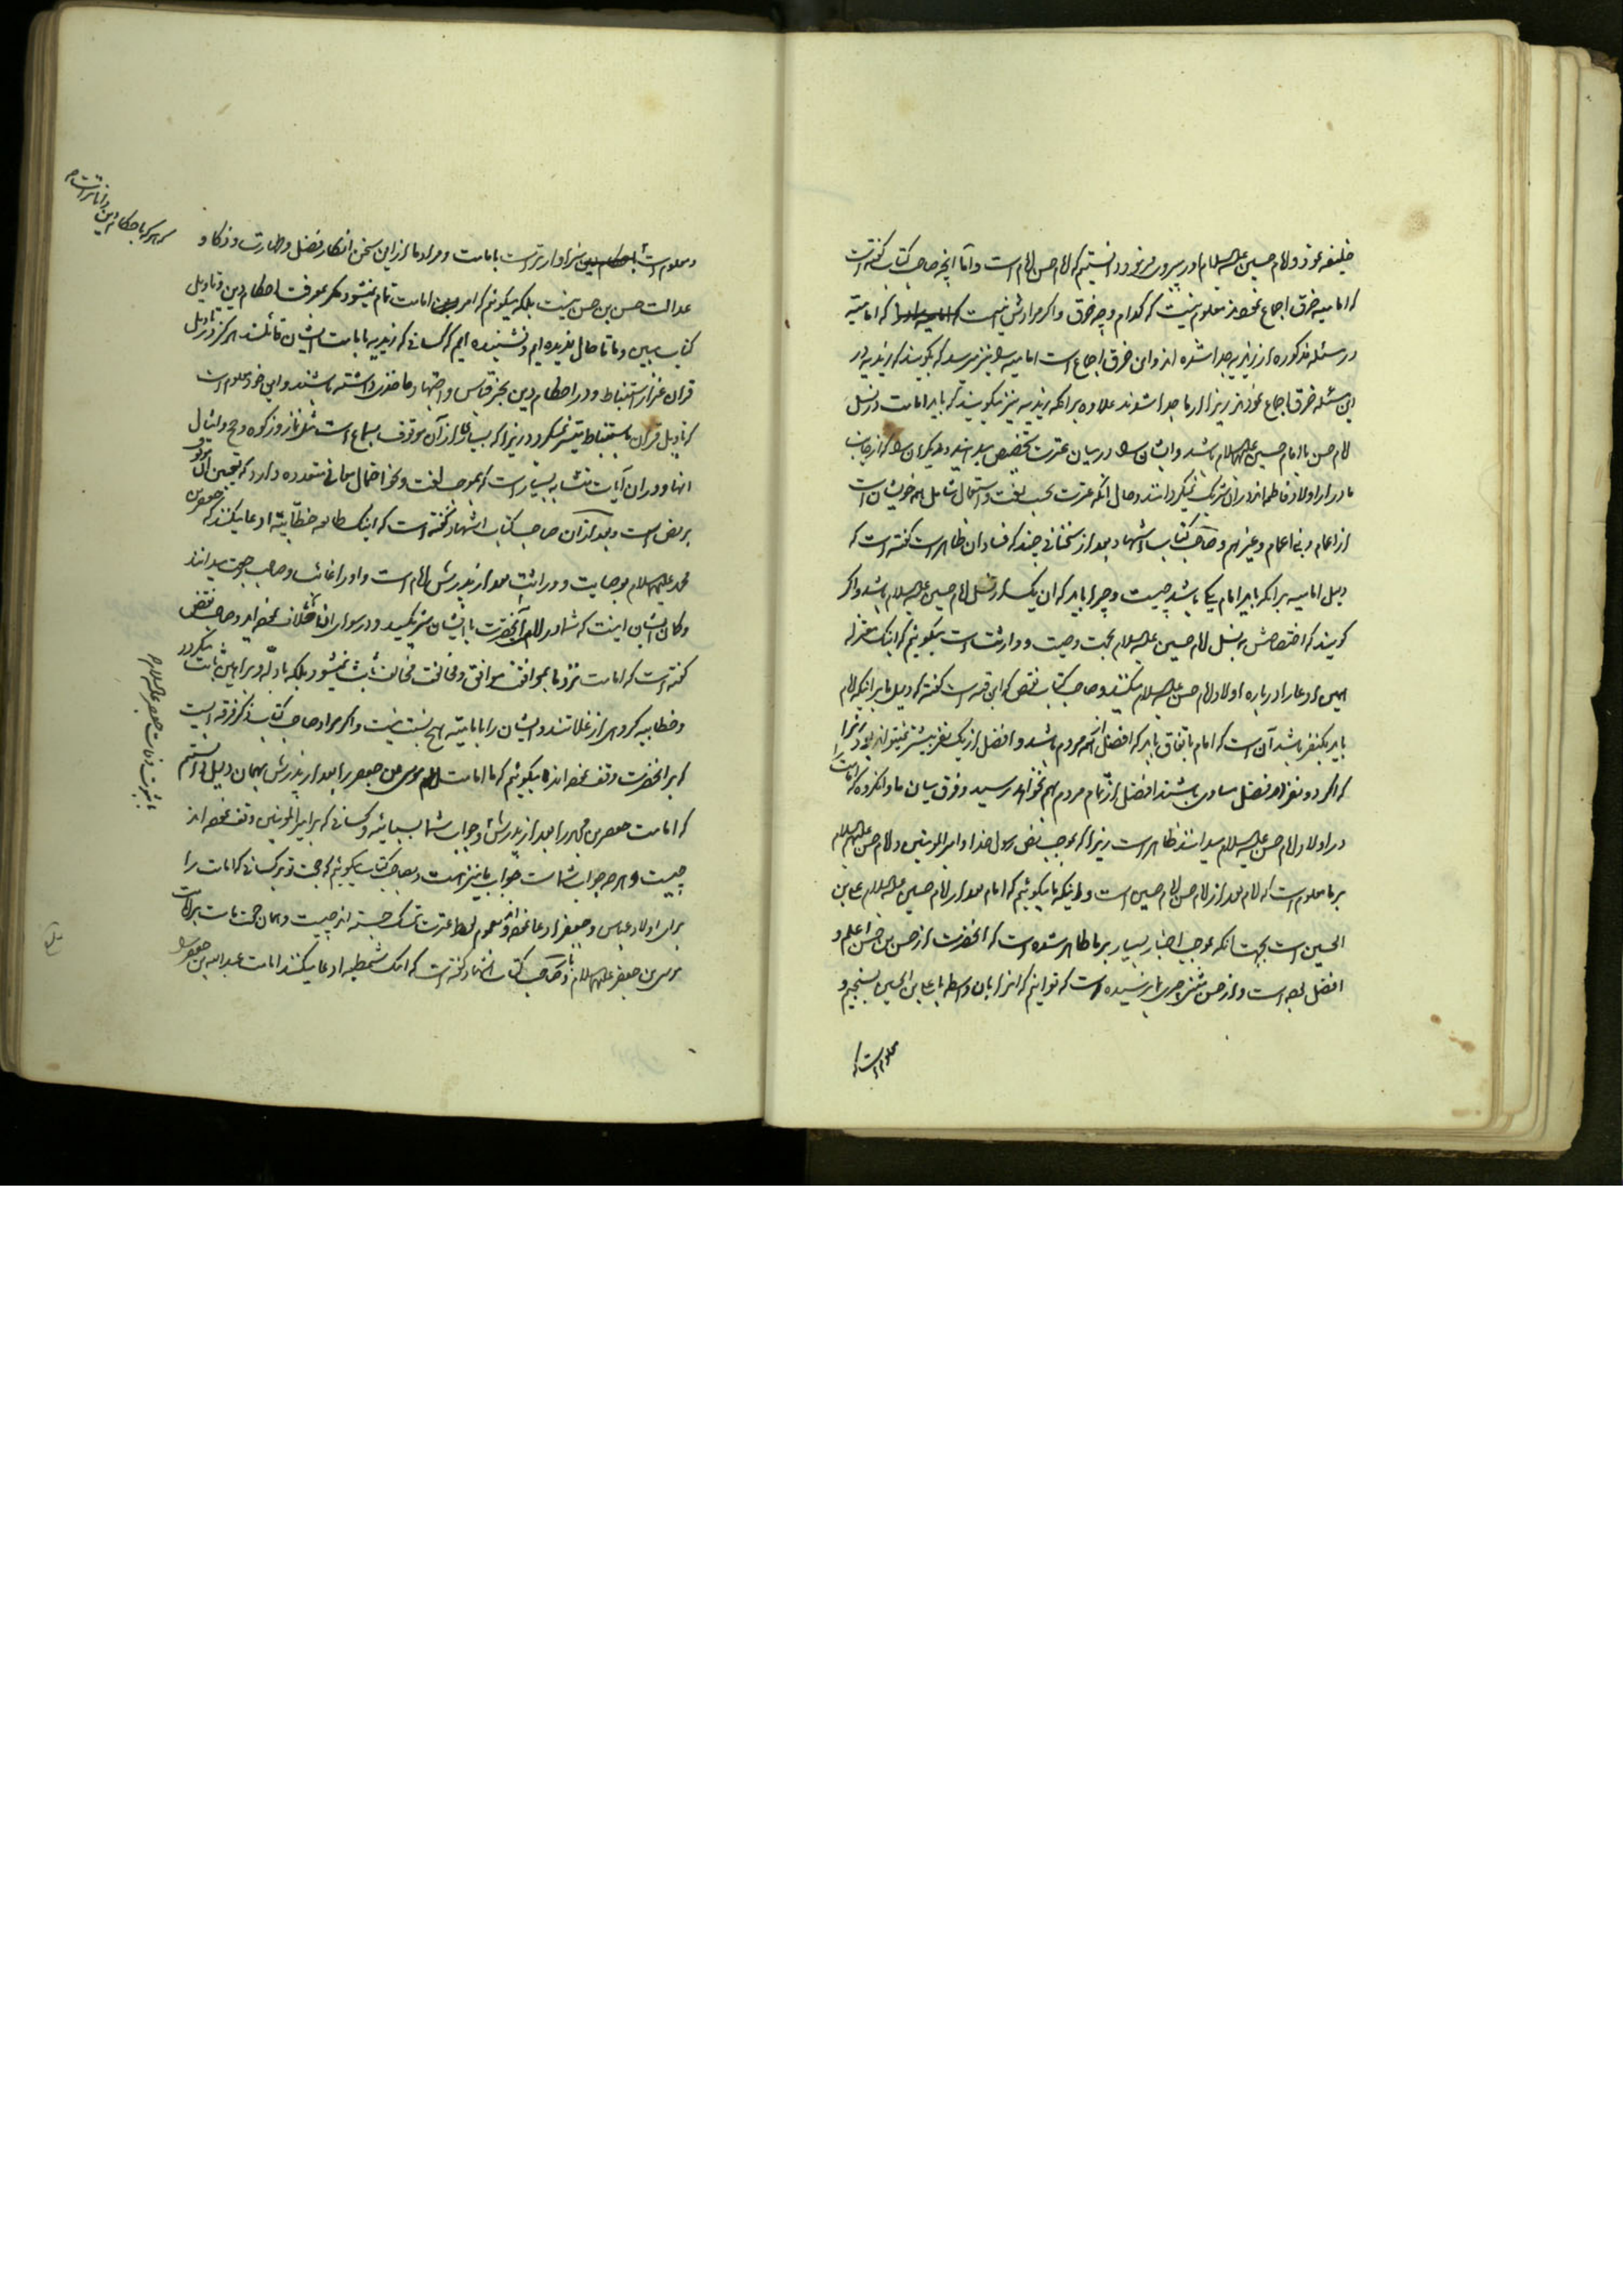 خلیفه نمود و امام حسین علیه السلام او را پیروی نمود دانستیم که امام حسن امام است و اما آنچه صاحب کتاب گفته است
که امامیه خرق اجماع نموده‌اند معلوم نیست که کدام وجه خرق و اگر مرادش اینست که امامیه
در مسئله مذکوره از زیدیه جدا شده اند و این خرق اجماع است امامیه را نیز میرسد که بگویند که زیدیه در
این مسئله خرق اجماع نموده‌اند زیرا از ما جدا شوند علاوه بر آنکه زیدیه نیز میگویند که باید امامت در نسل
امام حسن یا امام حسین علیهما السلام باشد و ایشان را در میان عترت تخصیص میدهند و دیگران را که از جانب
مادر از اولاد فاطمه اند در آن شریک نمیگردانند و حال آنکه عترت بحسب لغت و استعمال شامل همه خویشان است
از اعمام و بنی اعمام و غیرهم و صاحب کتاب اشهاد بعد از سخنانی چند که فساد آن ظاهر است گفته است که
دلیل امامیه بر آنکه باید امام یکی باشد چیست و چرا باید که آن یک از نسل امام حسین علیه السلام باشد و اگر
گویند که اختصاصش به نسل امام حسین علیه السلام بجهت وصیت و وراثت است میگوئیم که اینک مغیریه
همین ادعا را در باره اولاد امام حسن علیه السلام میکنند و صاحب کتاب نقض که ابن قبه است گفته که دلیل ما بر اینکه امام
باید یکنفر باشد آن است که امام باتفاق باید که افضل همه مردم باشد و افضل از یک نفر بیشتر نمیتواند بود زیرا
که اگر دو نفر در فضل مساوی باشند افضل از تمام مردم بهم نخواهد رسید و فرق میان ما و آن گروه که امامت
در اولاد امام حسن علیه السلام میدانند ظاهر است زیرا که بموجب نص رسول خدا و امیر المؤمنین و امام حسن علیهم السلام
بر ما معلوم است که امام بعد از امام حسن امام حسین است و اینکه ما میگوئیم که امام بعد از امام حسین علیه السلام علی بن
الحسین است بجهت آنکه بموجب اخبار بسیار بر ما ظاهر شده است که آنحضرت از حسن بن حسن اعلم و
افضل بوده است و از حسن مثنی چیزی بما نرسیده است که توانیم که او را بآن واسطه با علی بن الحسین بسنجیم و
معلوم است که
و معلوم است سزاوارتر است بامامت و مراد ما از این سخن انکار فضل و طهارت و ذکا و
که هر که باحکام دین داناتر است
عدالت حسن بن حسن نیست بلکه میگوئیم که امر امامت تمام نمیشود مگر بمعرفت احکام دین و تاویل
کتاب مبین و ما تا حال ندیده ایم و نشنیده ایم که کسانی که زیدیه بامامت ایشان قائلند هرگز در تاویل
قرآن غیر از استنباط و در احکام دین بجز قیاس و اجتهاد مأخذی داشته باشند و این خود معلوم است
که تاویل قرآن باستنباط میسر نمیگردد زیرا که بسیاری از آن موقوف بسماع است مثل نماز و زکوه و حج و امثال
اینها و در آن آیات متشابه بسیار است که بموجب لغت و نحو احتمال معانی متعدده دارد که تعیین آن موقوف
بر نص است و بعد از آن صاحب کتاب اشهاد گفته است که اینک طایفه خطابیه ادعا میکنند که جعفر بن
محمد علیهما السلام بوصایت و وراثت بعد از پدرش امام است و او را غائب و صاحب رجعت میدانند
و گمان ایشان اینست که شما در امامت آنحضرت با ایشان شریکید و در سوای آن اختلاف نموده‌اید و صاحب نقض
گفته است که امامت نزد ما بموافقت موافق و مخالفت مخالف ثابت نمیشود بلکه بادله و براهین ثابت میگردد
و خطابیه گروهی از غلاتند و ایشان را با امامیه هیچ نسبت نیست و اگر مراد صاحب کتاب ذکر فرقه ایست
که بر آنحضرت وقف نموده اند میگوئیم که ما امامت موسی بن جعفر را بعد از پدرش بهمان دلیل دانستیم
بثبوت وفات جعفر علیه السلام
که امامت جعفر بن محمد را بعد از پدرش و جواب شما بسبائیه و کسانی که بر امیر المؤمنین وقف نموده اند
چیست و هر چه جواب شماست جواب ما نیز هست و بصاحب کتاب میگوئیم که حجت تو بر کسانی که امامت را
برای اولاد عباس و جعفر ادعا نموده و بعموم لفظ عترت تمسک جسته اند چیست و همان حجت ماست بر امامت
موسی بن جعفر علیهما السلام و صاحب کتاب اشهاد گفته است که اینک شمطیه ادعا میکنند امامت عبدالله بن جعفر را